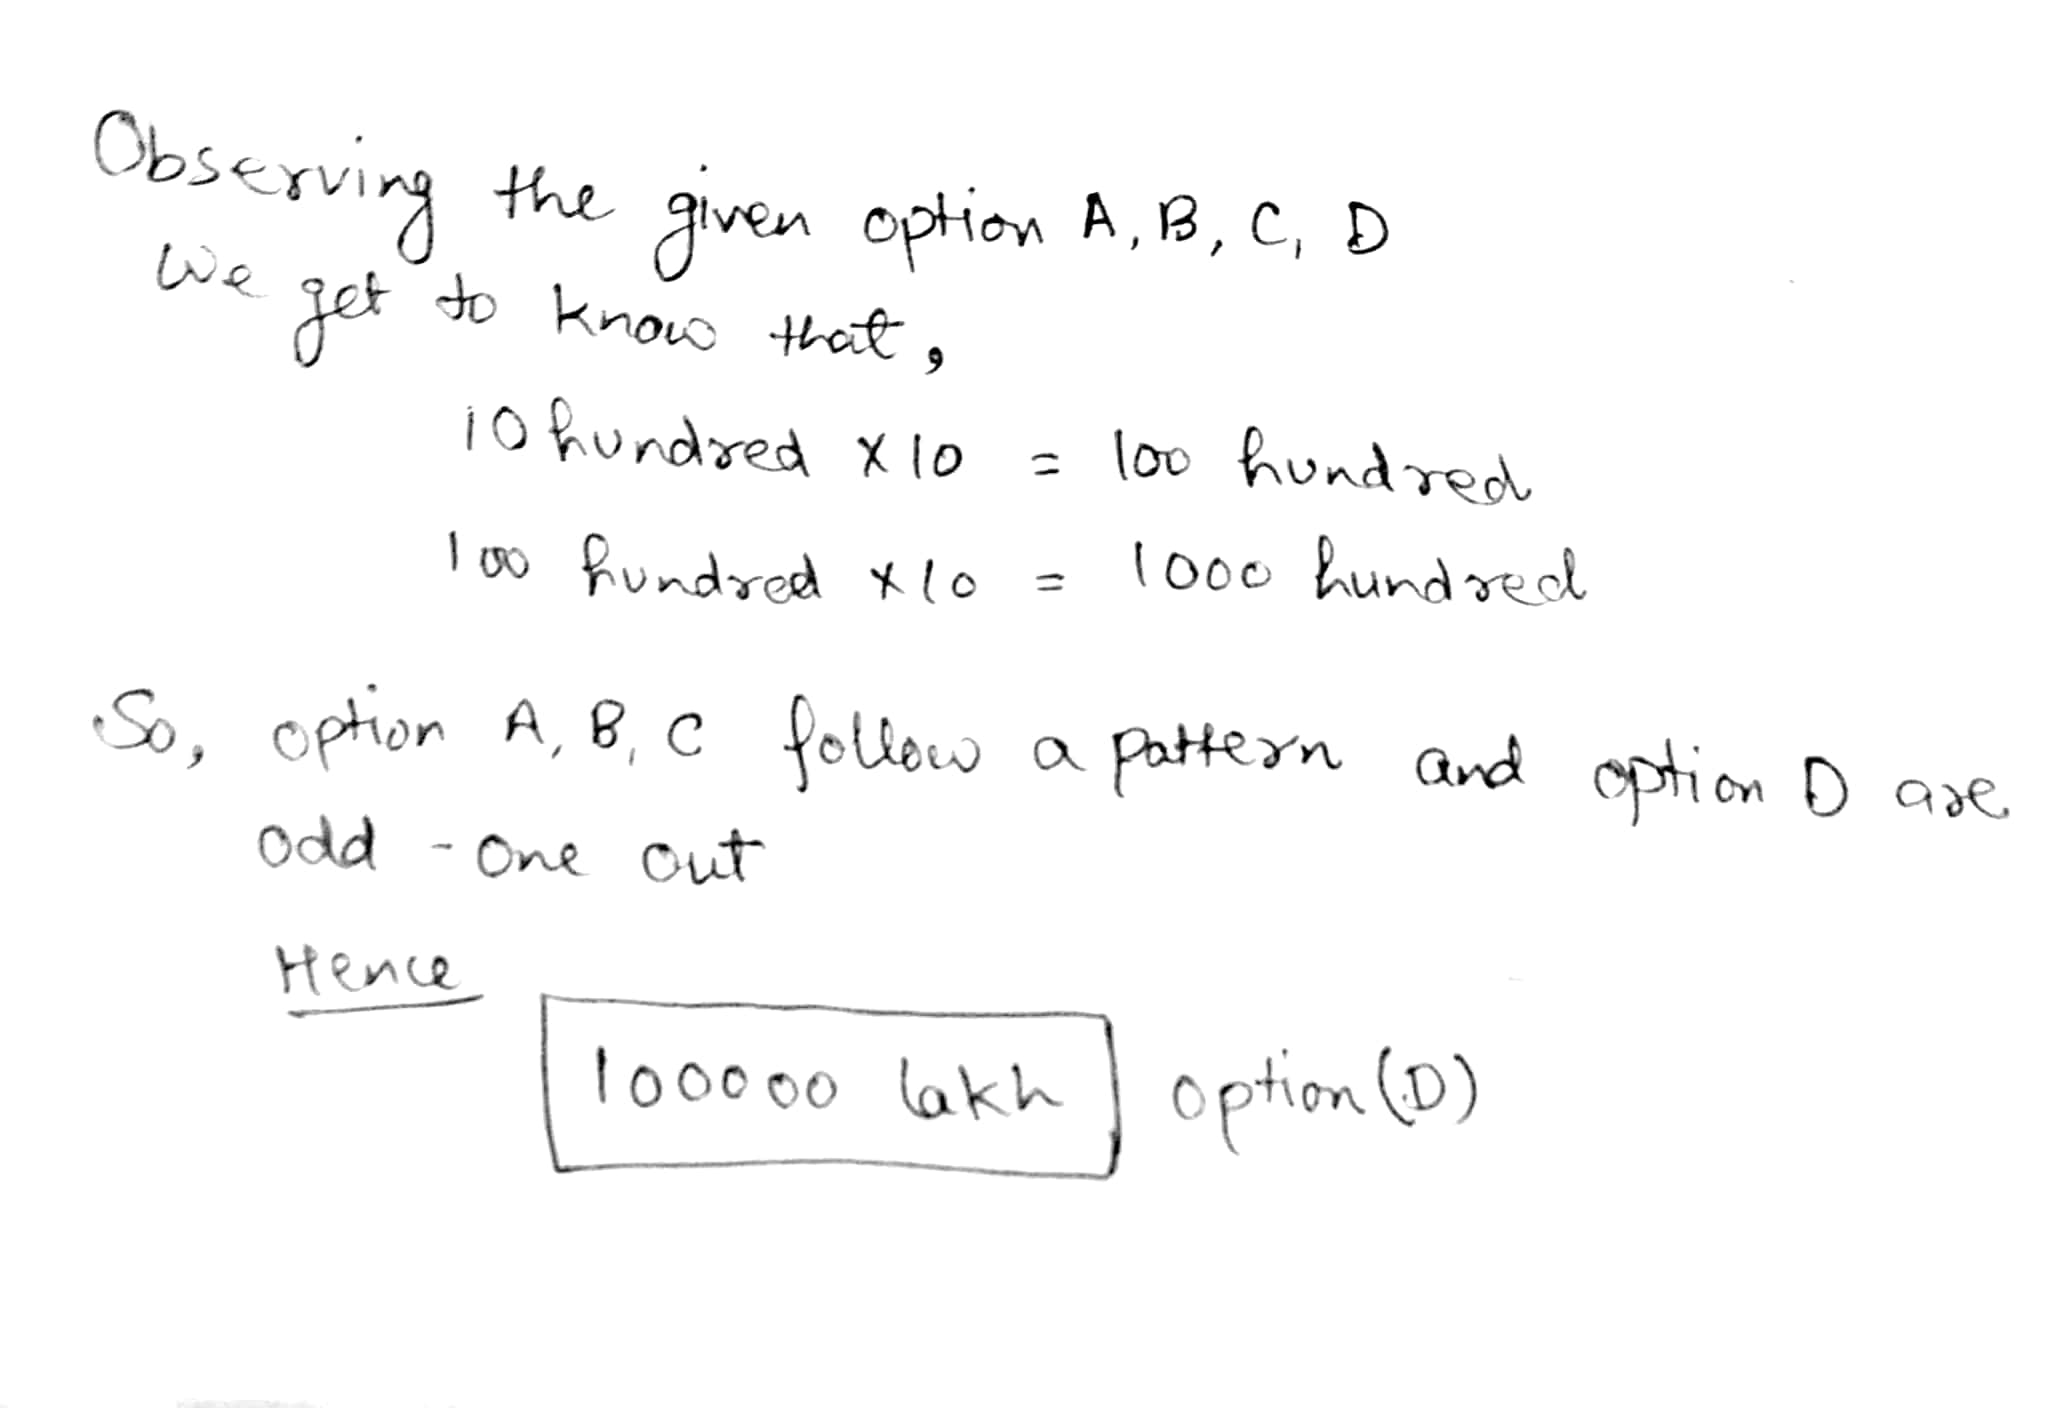 Observing the given option A, B, C, D
We get to know that,
10 hundred x 10 = 100 hundred
100 hundred x 10 = 1000 hundred
So, option A, B, C follow a pattern and option D are
odd - one out
Hence
100000 lakh option (D)